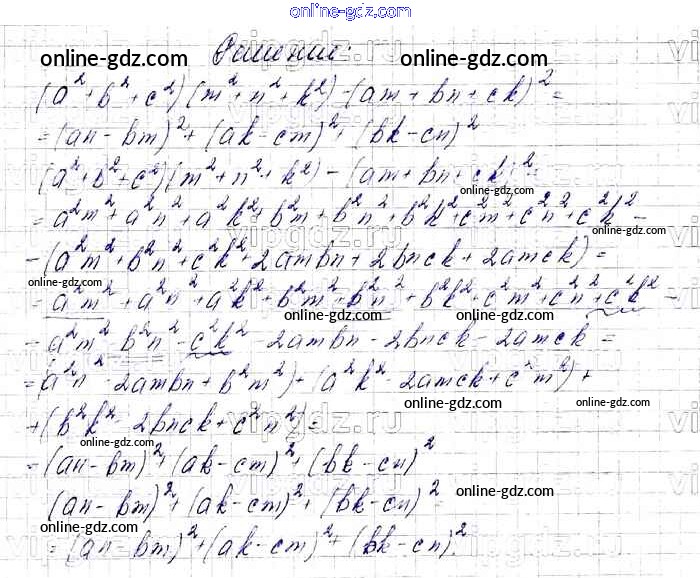 online-gdz.com
online-gdz.com Решение: online-gdz.com
(a² + b² + c²)(m² + n² + k²) - (am + bn + ck)² =
= (an - bm)² + (ak - cm)² + (bk - cn)²
(a² + b² + c²)(m² + n² + k²) - (am + bn + ck)² =
online-gdz.com
= a²m² + a²n² + a²k² + b²m² + b²n² + b²k² + c²m² + c²n² + c²k² -
- (a²m² + b²n² + c²k² + 2ambn + 2bnck + 2amck) =
online-gdz.com online-gdz.com
= a²m² + a²n² + a²k² + b²m² + b²n² + b²k² + c²m² + c²n² + c²k² -
online-gdz.com
- a²m² - b²n² - c²k² - 2ambn - 2bnck - 2amck =
= (a²n² - 2ambn + b²m²) + (a²k² - 2amck + c²m²) +
online-gdz.com online-gdz.com
+ (b²k² - 2bnck + c²n²) =
online-gdz.com
= (an - bm)² + (ak - cm)² + (bk - cn)²
(an - bm)² + (ak - cm)² + (bk - cn)² =
online-gdz.com online-gdz.com
= (an - bm)² + (ak - cm)² + (bk - cn)².
online-gdz.com online-gdz.com